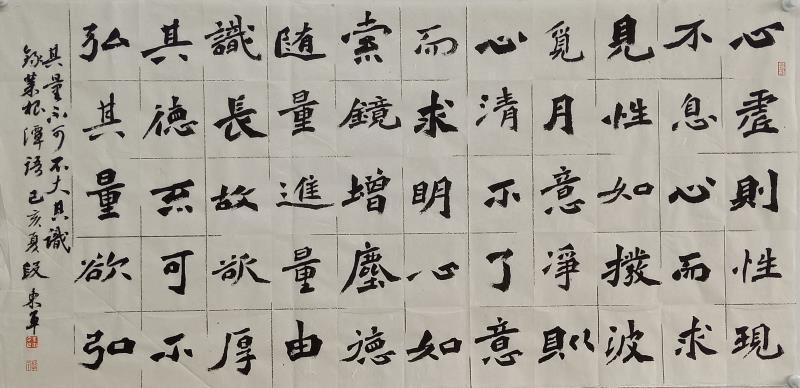 心虛則性現
不息心而求
見性如撥波
覓月意淨則
心清不了意
而求明心如
索鏡增塵德
随量進量由
識長故欲厚
其德不可不
弘其量欲弘
其量不可不大其識
錄菜根潭語己亥夏段東